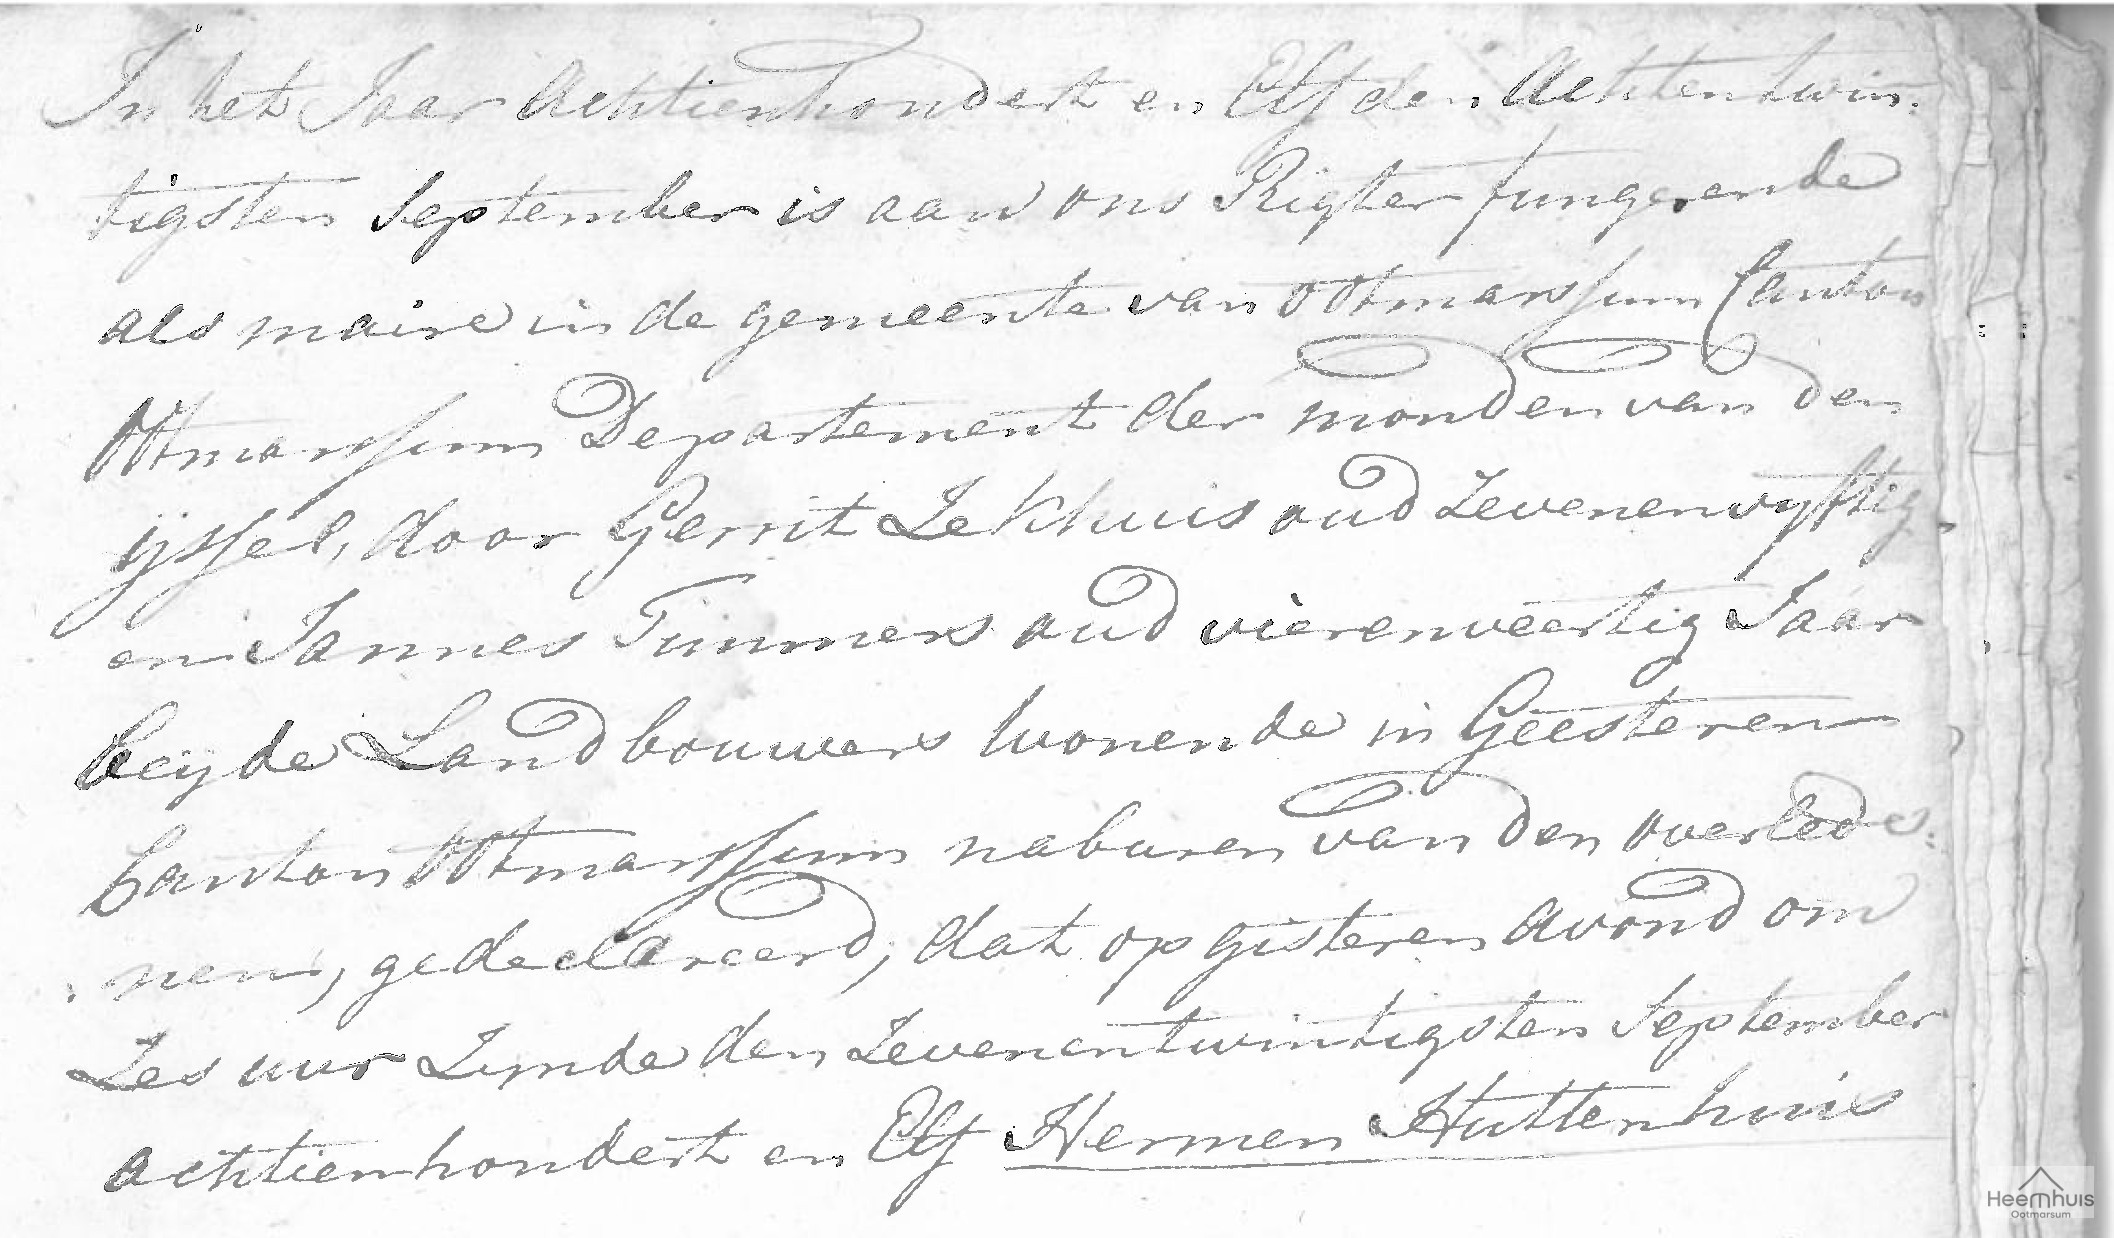 In het Jaar Achtienhondert en Elf den Achtentwin:
tigsten September is aan ons Rigter fungerende
als maire in de gemeente van Ootmarssum Canton
Ootmarssum Departement der monden van den
ijssel, door Gerrit Lekhuis oud Zevenenvyftig
en Jannes Timmers oud vierenveertig Jaar
beyde Landbouwers wonende in Geesteren
Canton Ootmarssum naburen van den overlede:
:nen, gedeclareerd, dat op gisteren avond om
Zes uur Zynde den Zevenentwintigsten September
achtienhondert en Elf Hermen Huttenhuis
Heemhuis
Ootmarsum